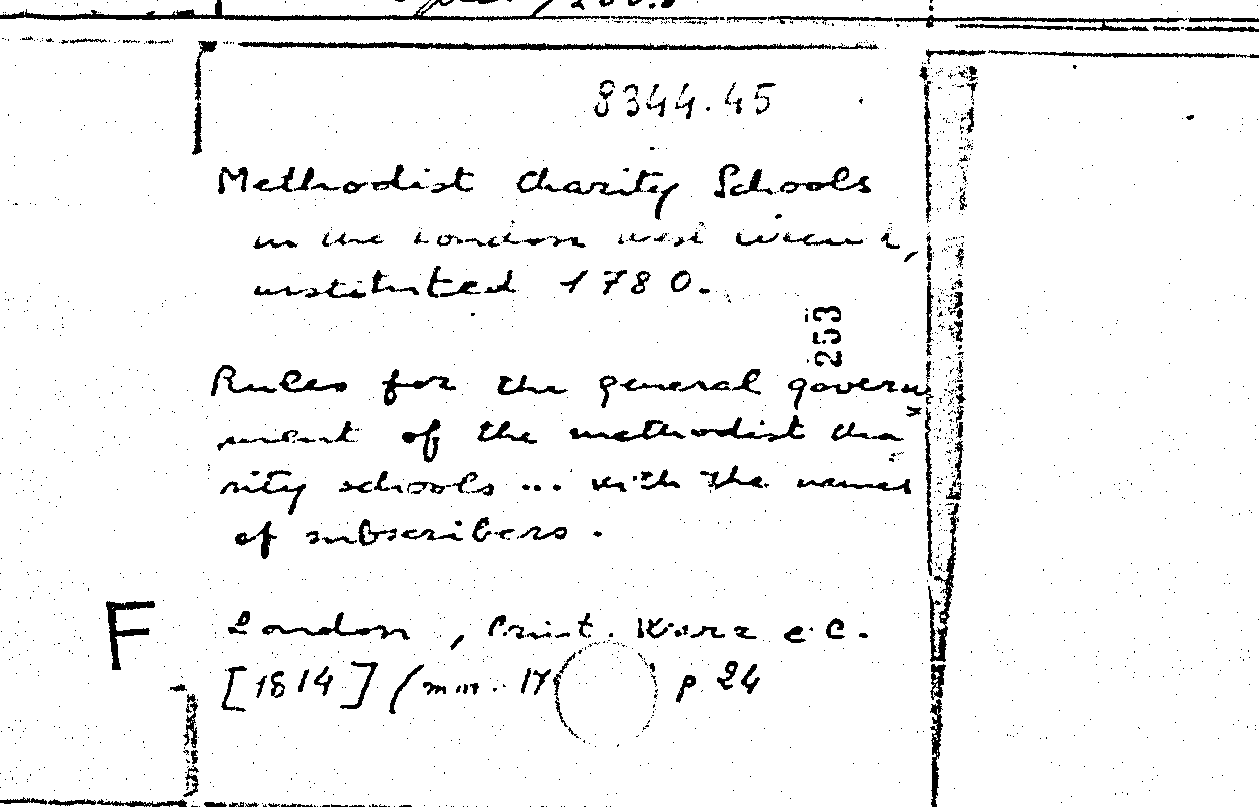 8344.45
Methodist Charity Schools
in the London West Circuit,
instituted 1780.
253
Rules for the general govern
ment of the methodist cha
rity schools ... with the names
of subscribers.
F
London, Print. e. C.
[1814] (mm. 17 p 24